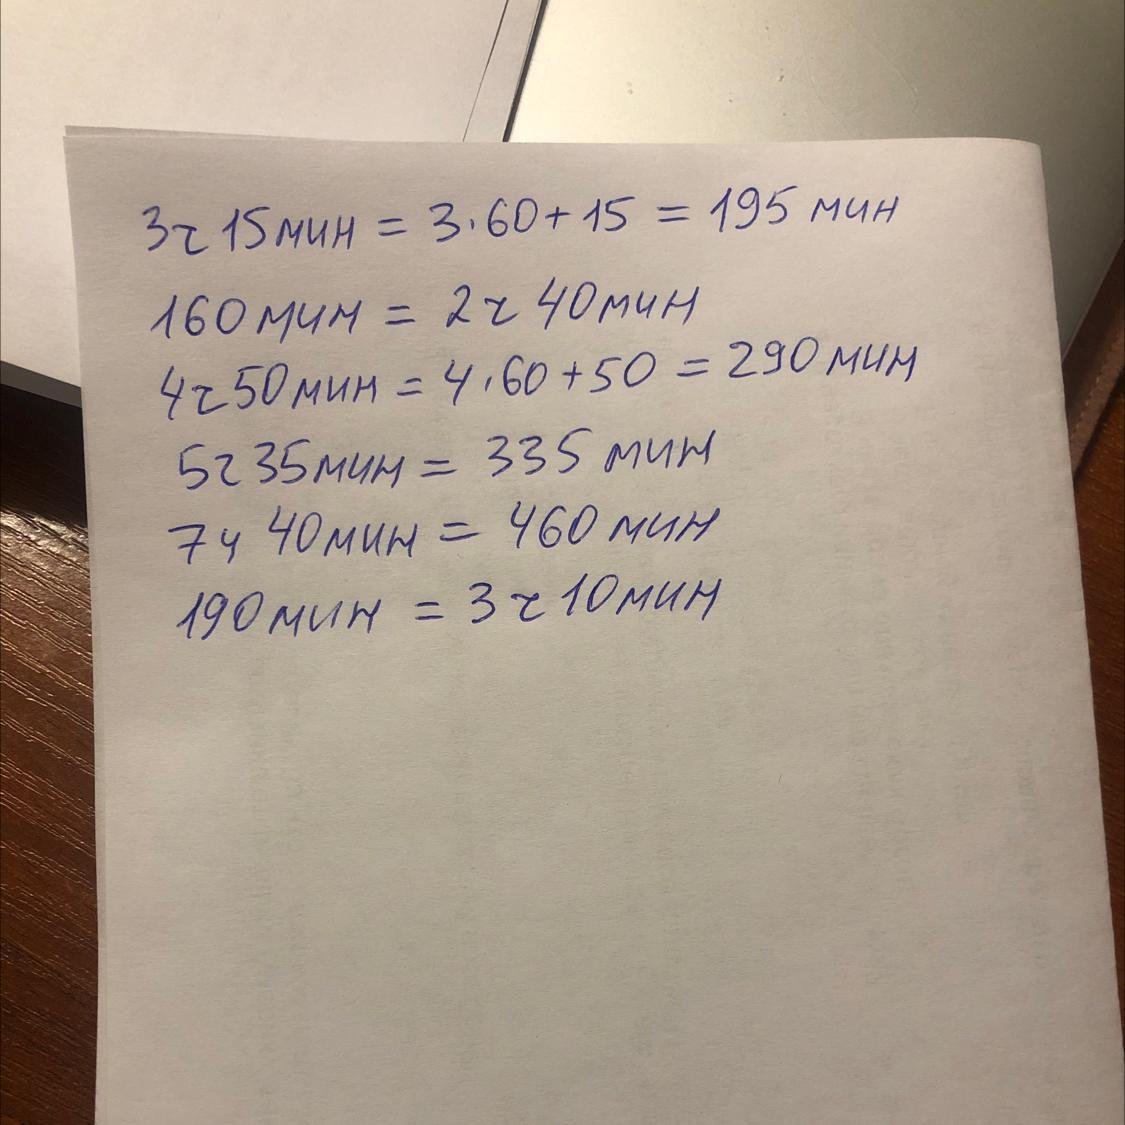 3ч 15мин = 3·60+15 = 195 мин
160мин = 2ч 40мин
4ч50мин = 4·60+50 = 290мин
5ч35мин = 335 мин
7ч 40мин = 460 мин
190мин = 3ч 10мин